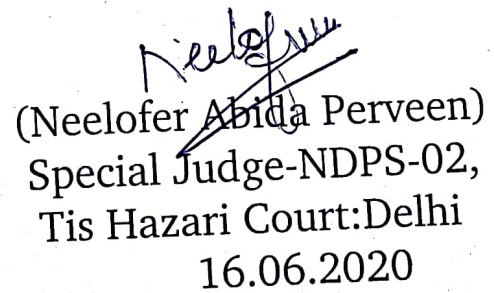 Neelofer
(Neelofer Abida Perveen)
Special Judge-NDPS-02,
Tis Hazari Court:Delhi
16.06.2020